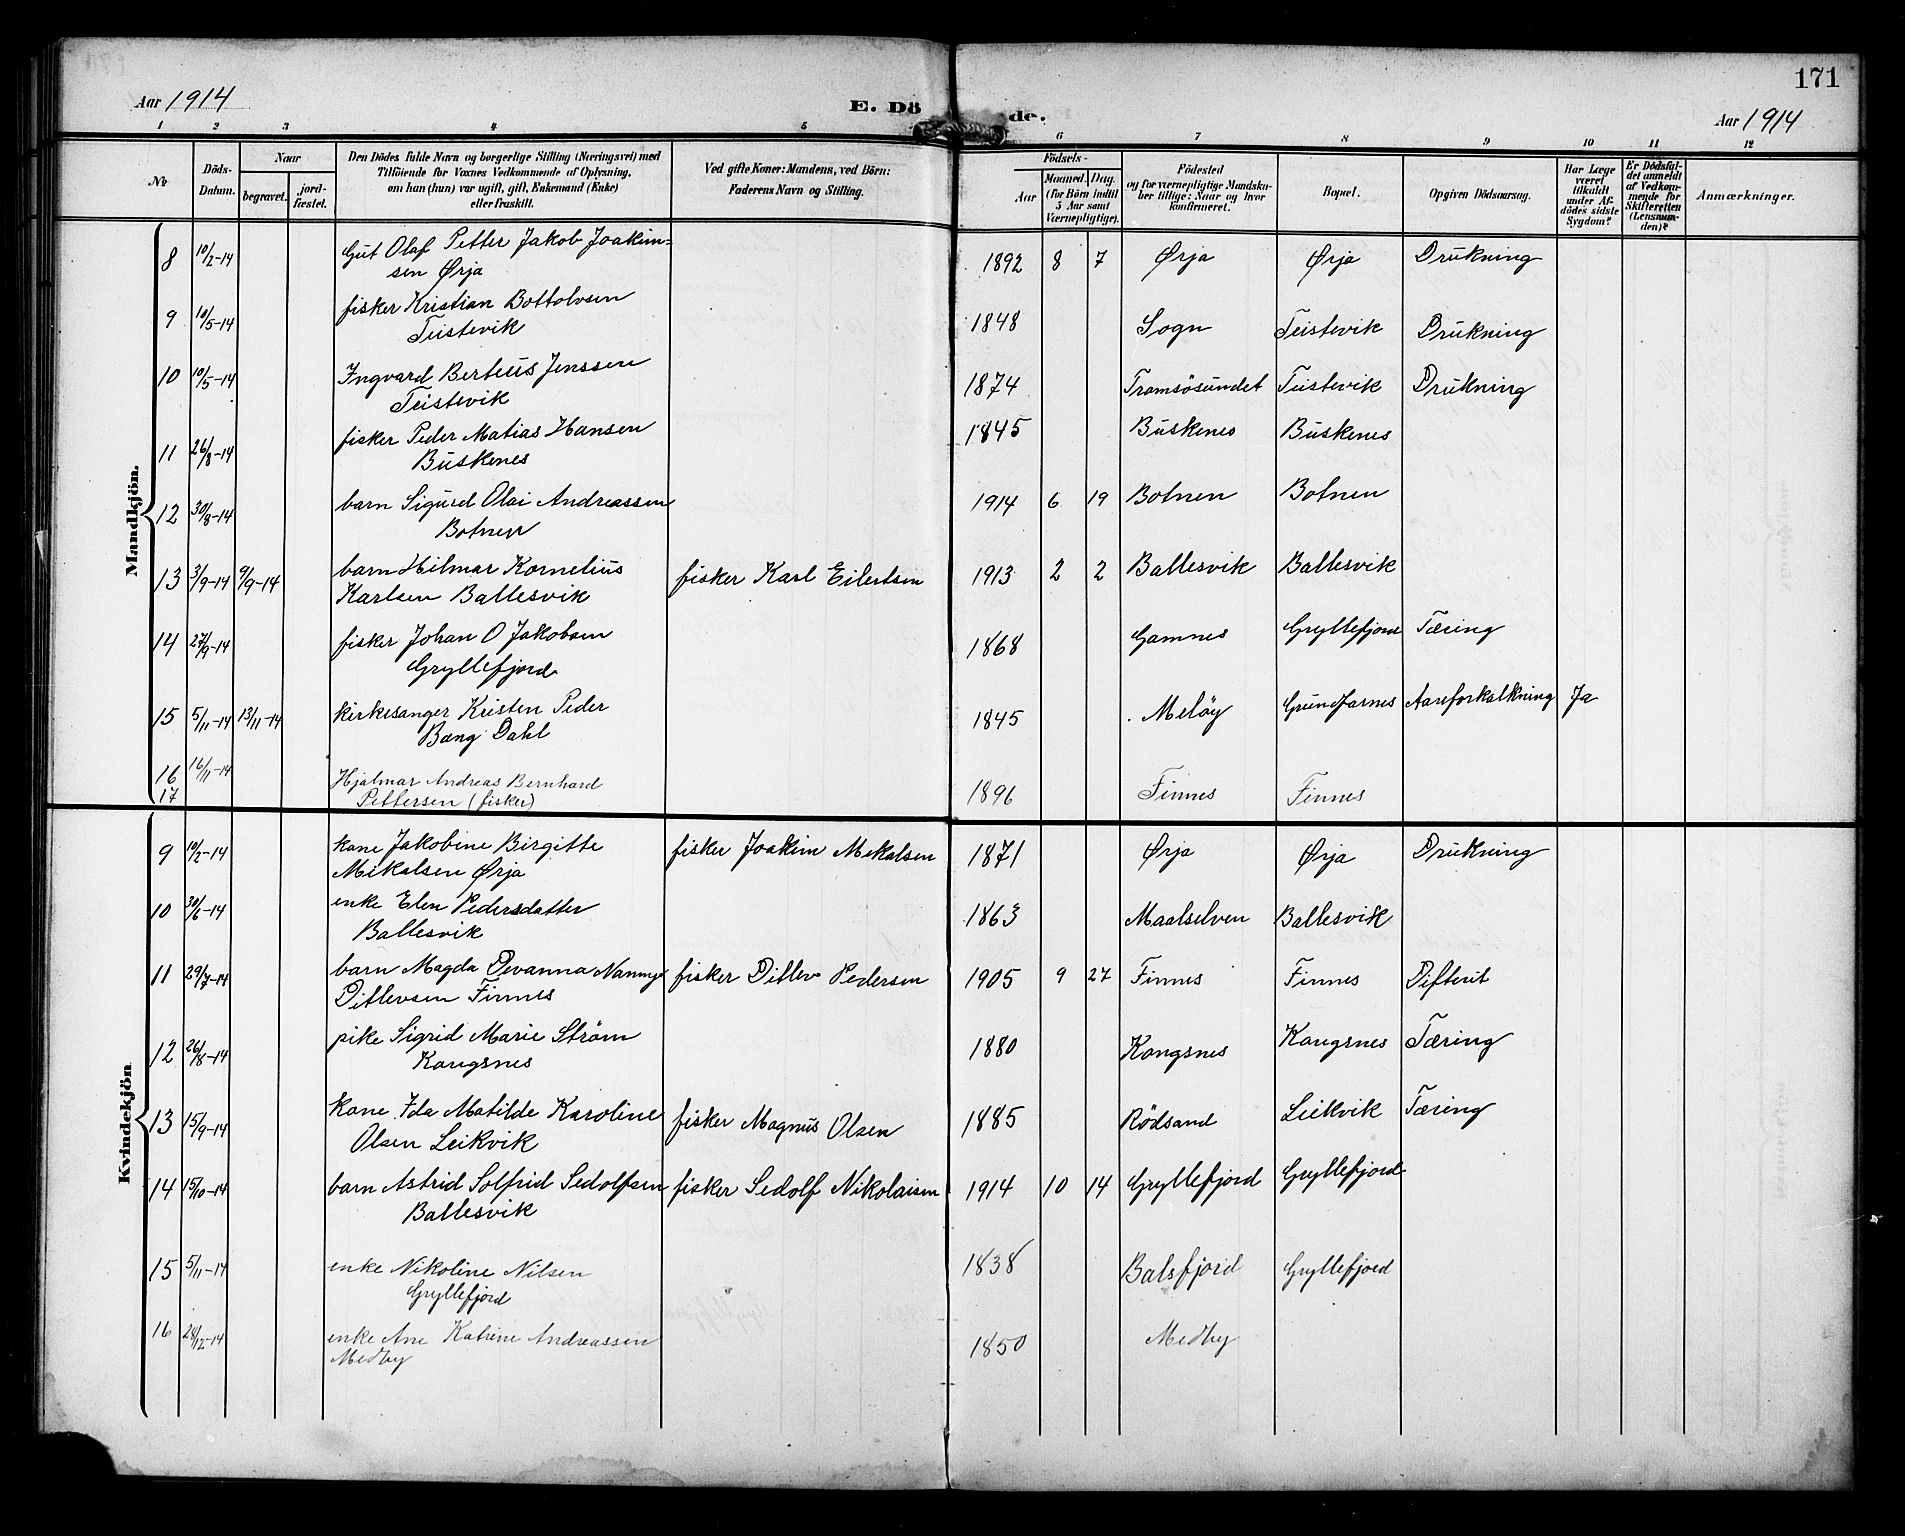 171
Aar 1914
E. Dö
de.
Aar 1914
1 2 3 4 5 6 7 8 9 10 11 12
No
Döds-
Datum.
Naar
begravet.
jord-
fæstet.
Den Dödes fulde Navn og borgerlige Stilling (Næringsvei) med
Tilföiende for Voxnes Vedkommende af Oplysning,
om han (hun) var ugift, gift, Enkemand (Enke)
eller fraskilt.
Ved gifte Koner: Mandens, ved Börn:
Faderens Navn og Stilling.
Födsels-
Aar
Maaned. Dag.
(for Börn indtil
5 Aar samt
Værnepligtige).
Födested
og for værnepligtige Mandska-
ber tillige: Naar og hvor
konfirmeret.
Bopæl.
Opgiven Dödsaarsag.
Har Læge
været
tilkaldt
under Af-
dödes sidste
Sygdom?
Er Dödsfal-
det anmeldt
af Vedkom-
mende for
Skifteretten
(Lensman-
den)?
Anmærkninger.
Mandkjön.
8 10/2-14 Gut Olaf Petter Jakob Joakim- 1892 8 7 Ørja Ørja Drukning
sen Ørja
9 10/5-14 fisker Kristian Bottolvsen 1848 Sogn Teistevik Drukning
Teistevik
10 10/5-14 Ingvard Berteus Jenssen 1874 Tromsösundet Teistevik Drukning
Teistevik
11 26/8-14 fisker Peder Matias Hansen 1845 Buskenes Buskenes
Buskenes
12 30/8-14 barn Sigurd Olai Andreassen 1914 6 19 Botnen Botnen
Botnen
13 3/9-14 9/9-14 barn Hilmar Kornelius fisker Karl Eilertsen 1913 2 2 Ballesvik Ballesvik
Karlsen Ballesvik
14 27/9-14 fisker Johan O Jakobsen 1868 Gamnes Gryllefjord Tæring
Gryllefjord
15 5/11-14 13/11-14 kirkesanger Kristen Peder 1845 Melöy Grundfarnes Aareforkalkning Ja
Bang Dahl
16 16/11-14 Hjalmar Andreas Bernhard 1896 Finnes Finnes
17 Pettersen (fisker)
Kvindekjön
9 10/2-14 kone Jakobine Birgitte fisker Joakim Mikalsen 1871 Ørja Ørja Drukning
Mikalsen Ørja
10 30/6-14 enke Elen Pedersdatter 1863 Maalselven Ballesvik
Ballesvik
11 29/7-14 barn Magda Nanny fisker Ditlev Pedersen 1905 9 27 Finnes Finnes Difterit
Ditlevsen Finnes
12 26/8-14 pike Sigrid Marie Ström 1880 Kongsnes Kongsnes Tæring
Kongsnes
13 15/9-14 kone Ida Matilde Karoline fisker Magnus Olsen 1885 Rödsand Leikvik Tæring
Olsen Leikvik
14 15/10-14 barn Astrid Solfrid Sedolfsen fisker Sedolf Nikolaisen 1914 10 14 Gryllefjord Gryllefjord
Ballesvik
15 5/11-14 enke Nikoline Nilsen 1838 Balsfjord Gryllefjord
Gryllefjord
16 28/12-14 enke Ane Katrine Andreassen 1850 Medby
Medby